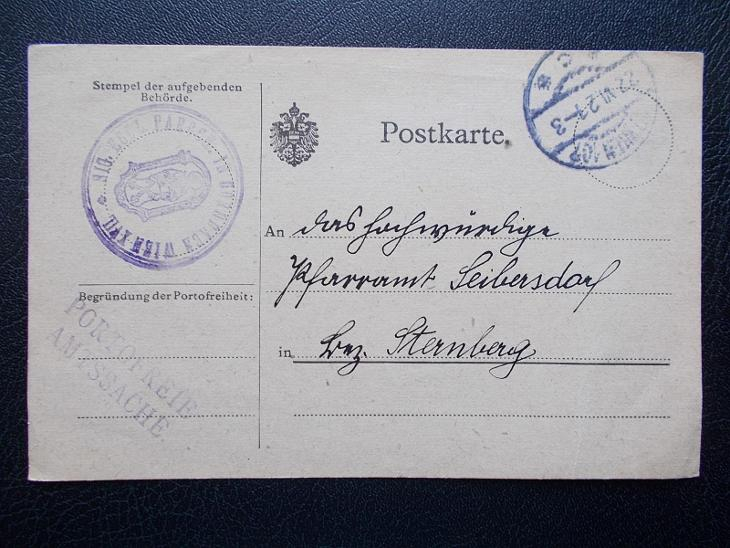 Stempel der aufgebenden
Behörde.
WIEN XVII.
Postkarte.
22.VI.2
3
WIEN 107
An das hochwürdige
Pfarramt Seibersdorf
in Bez. Sternberg
Begründung der Portofreiheit:
PORTOFREIE
AMTSSACHE